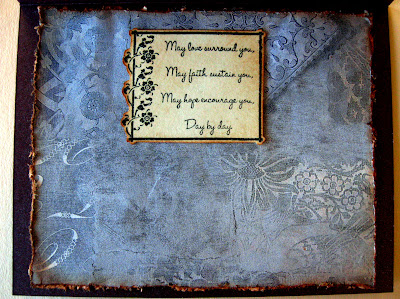 May love surround you,
May faith sustain you,
May hope encourage you,
Day by day.